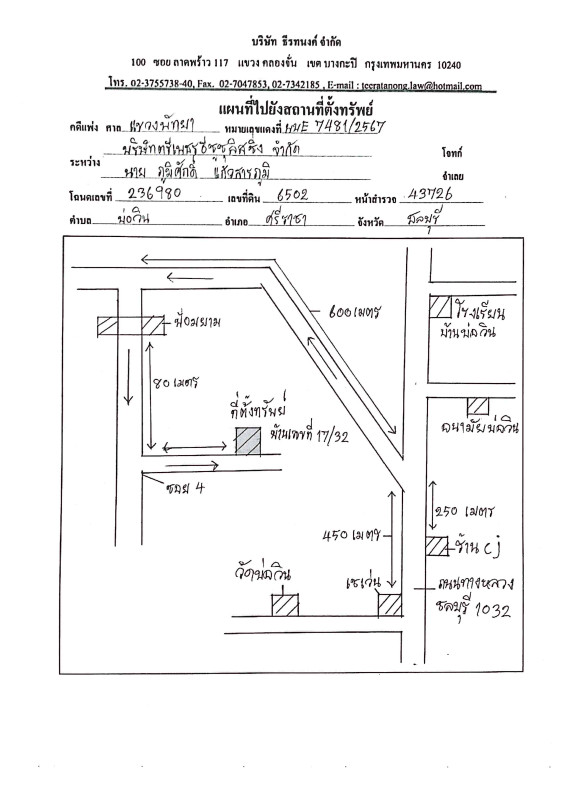 บริษัท ธีรทนงค์ จำกัด
100 ซอย ลาดพร้าว 117 แขวง คลองจั่น เขต บางกะปิ กรุงเทพมหานคร 10240
โทร. 02-3755738-40, Fax. 02-7047853, 02-7342185 , E-mail : teeratanong.law@hotmail.com
แผนที่ไปยังสถานที่ตั้งทรัพย์
คดีแพ่ง ศาล แขวงพัทยา หมายเลขแดงที่ ผบE 7481/2567
ระหว่าง จำกัด โจทก์
นาย ภูมิศักดิ์ แก้วสารภูมิ จำเลย
โฉนดเลขที่ 236980 เลขที่ดิน 6502 หน้าสำรวจ 43726
ตำบล บ่อวิน อำเภอ ศรีราชา จังหวัด ชลบุรี
600 เมตร
โรงเรียน
บ้านบ่อวิน
ป้อมยาม
80 เมตร
ที่ตั้งทรัพย์
บ้านเลขที่ 17/32
อนามัยบ่อวิน
ซอย 4
250 เมตร
450 เมตร
ร้าน cj
วัดบ่อวิน
เซเว่น
ถนนทางหลวง
ชลบุรี 1032